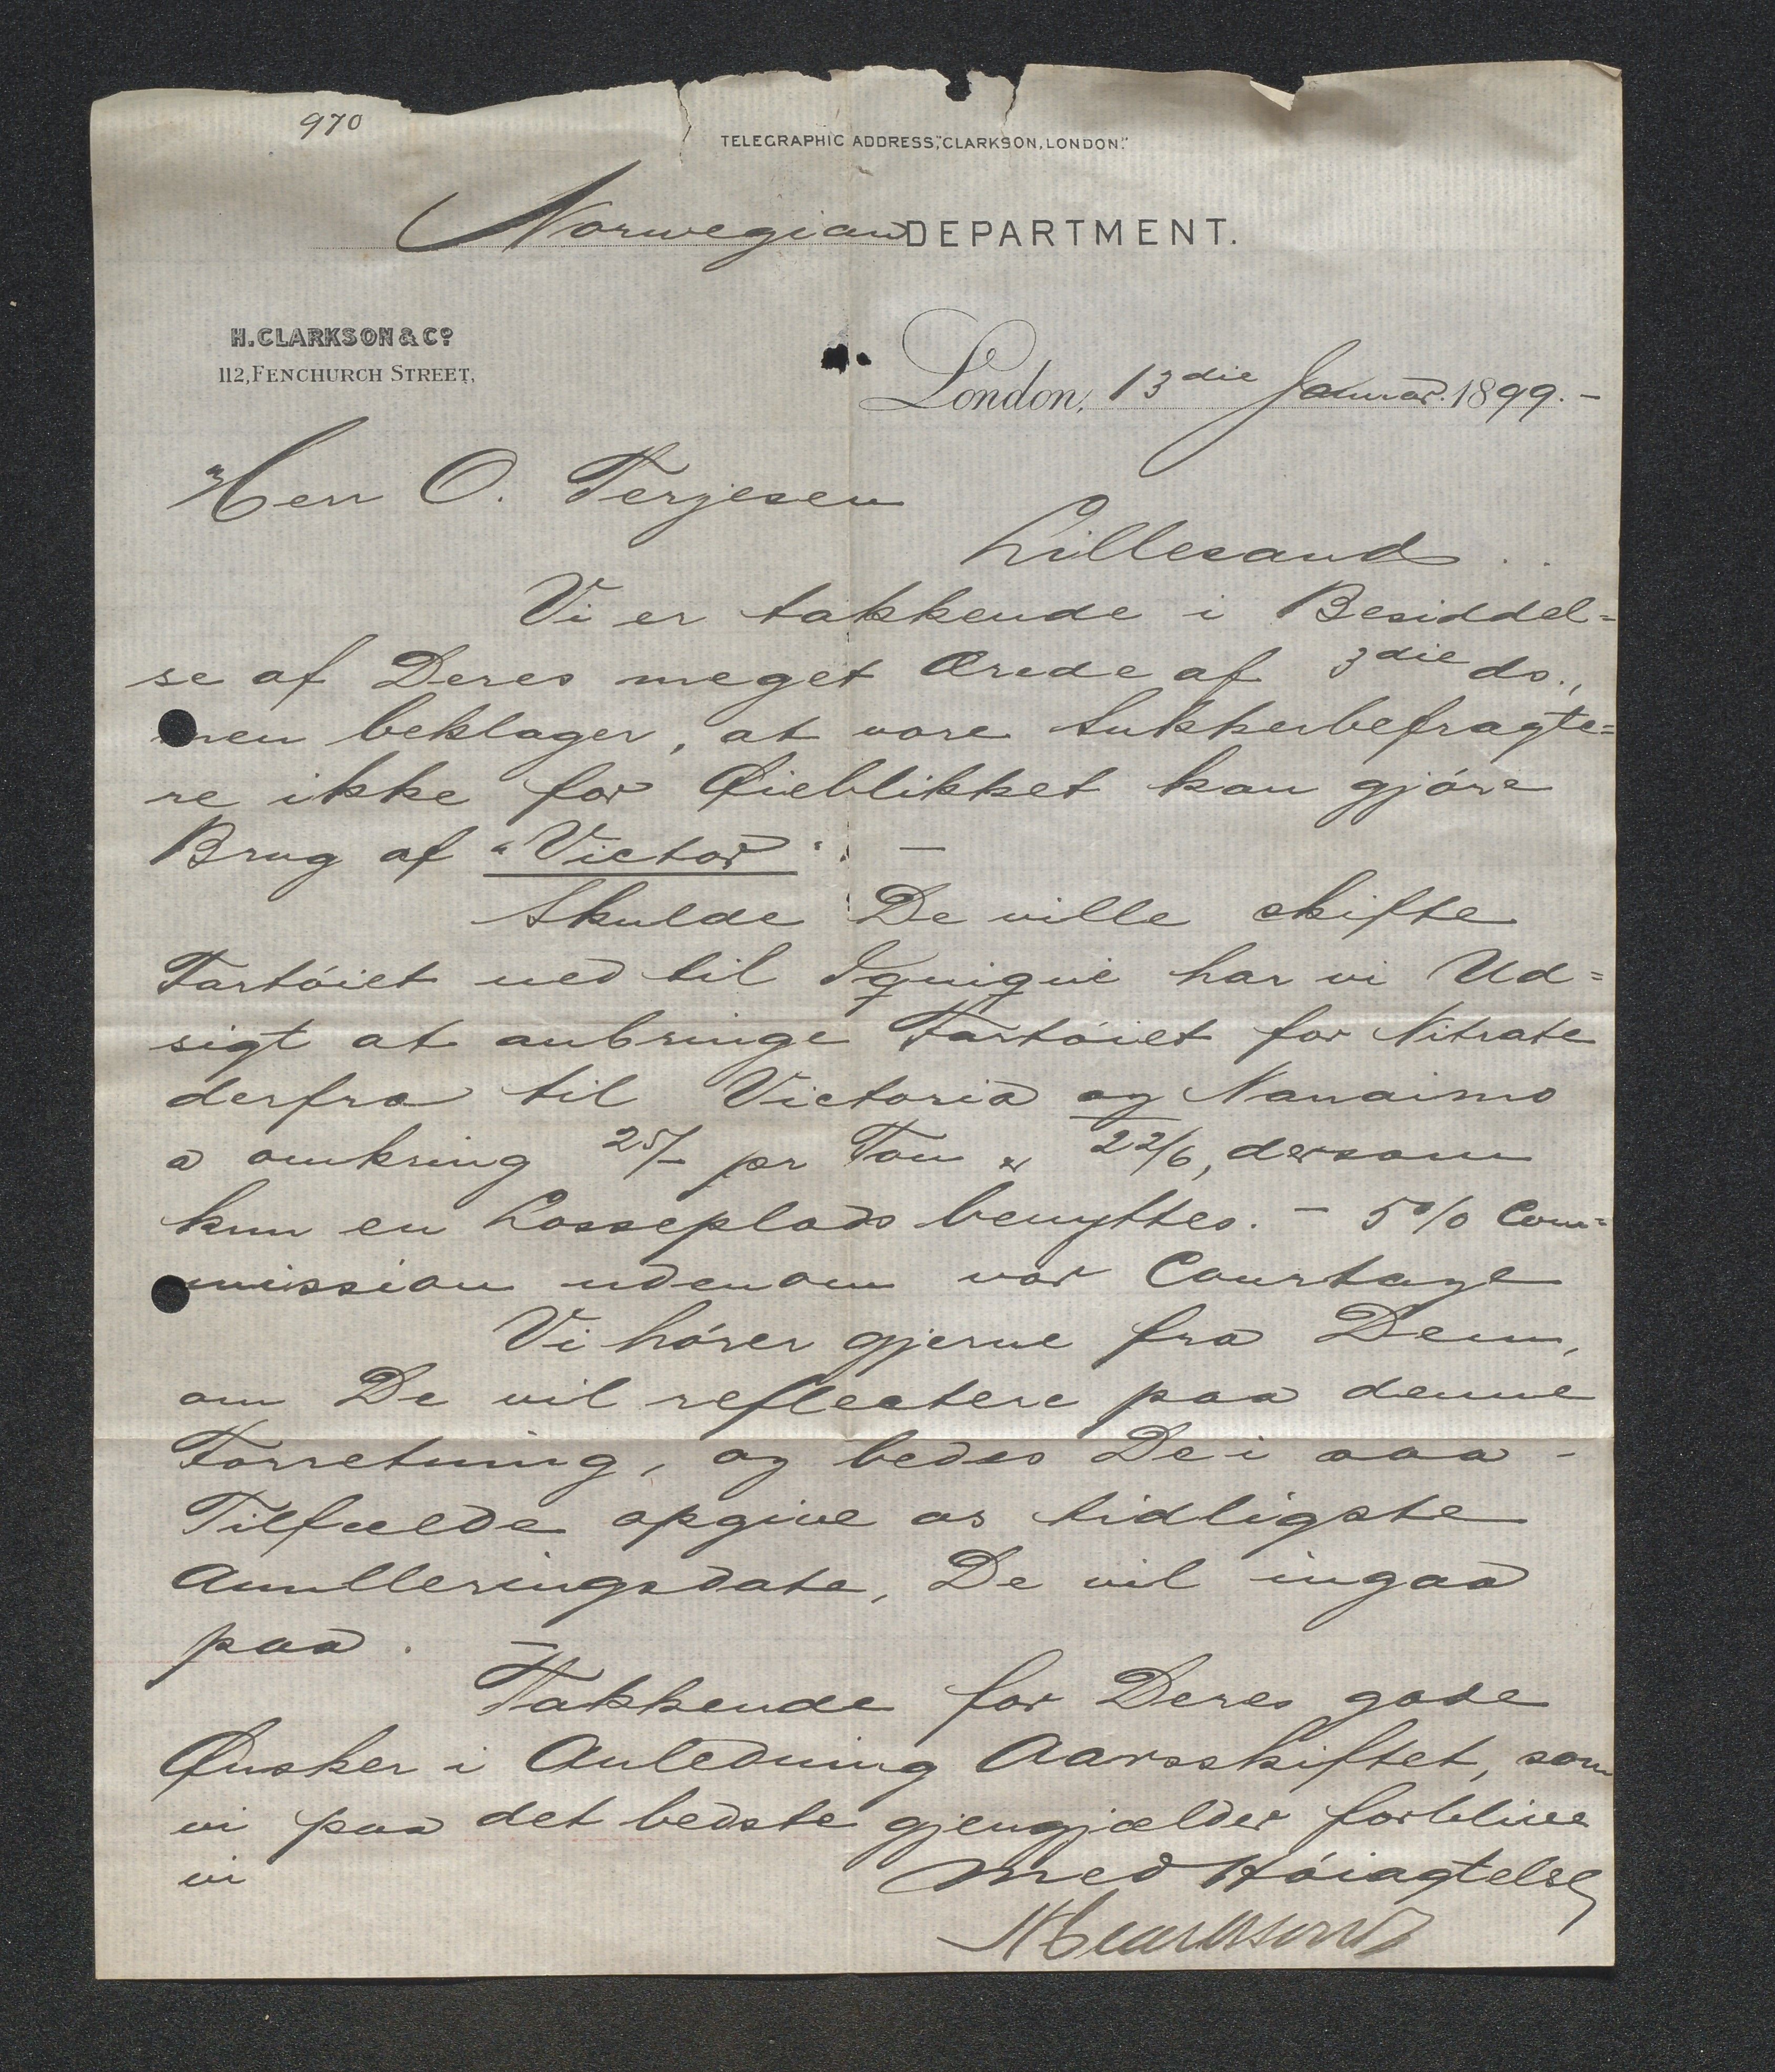 970
TELEGRAPHIC ADDRESS, "CLARKSON, LONDON."
Norwegian DEPARTMENT.
H. CLARKSON & Co
112, FENCHURCH STREET,
London, 13die Januar 1899. -
Herr O. Terjesen
Lillesand
Vi er takkende i Besiddel=
se af Deres meget Ærede af 3die do.,
men beklager, at vore Sukkerbefragte=
re ikke for Øieblikket kan gjöre
Brug af "Victor". -
Skulde De ville skifte
Fartöiet ned til Iquique har vi Ud=
sigt at anbringe Fartöiet for Nitrate
derfra til Victoria og Nanaimo
a omkring 25/- pr Ton 22/6, dersom
kun en Losseplads benyttes. - 5% Com=
mission udenom vor Courtage
Vi hörer gjerne fra Dem,
om De vil reflectere paa denne
Forretning, og bedes De i saa -
Tilfælde opgive os tidligste
Anulleringsdate, De vil ingaa
paa. -
Takkende for Deres gode
Ønsker i Anledning Aarsskiftet, som
vi paa det bedste gjengjælder forblive
vi
Med Höiagtelse
H Clarkson & Co